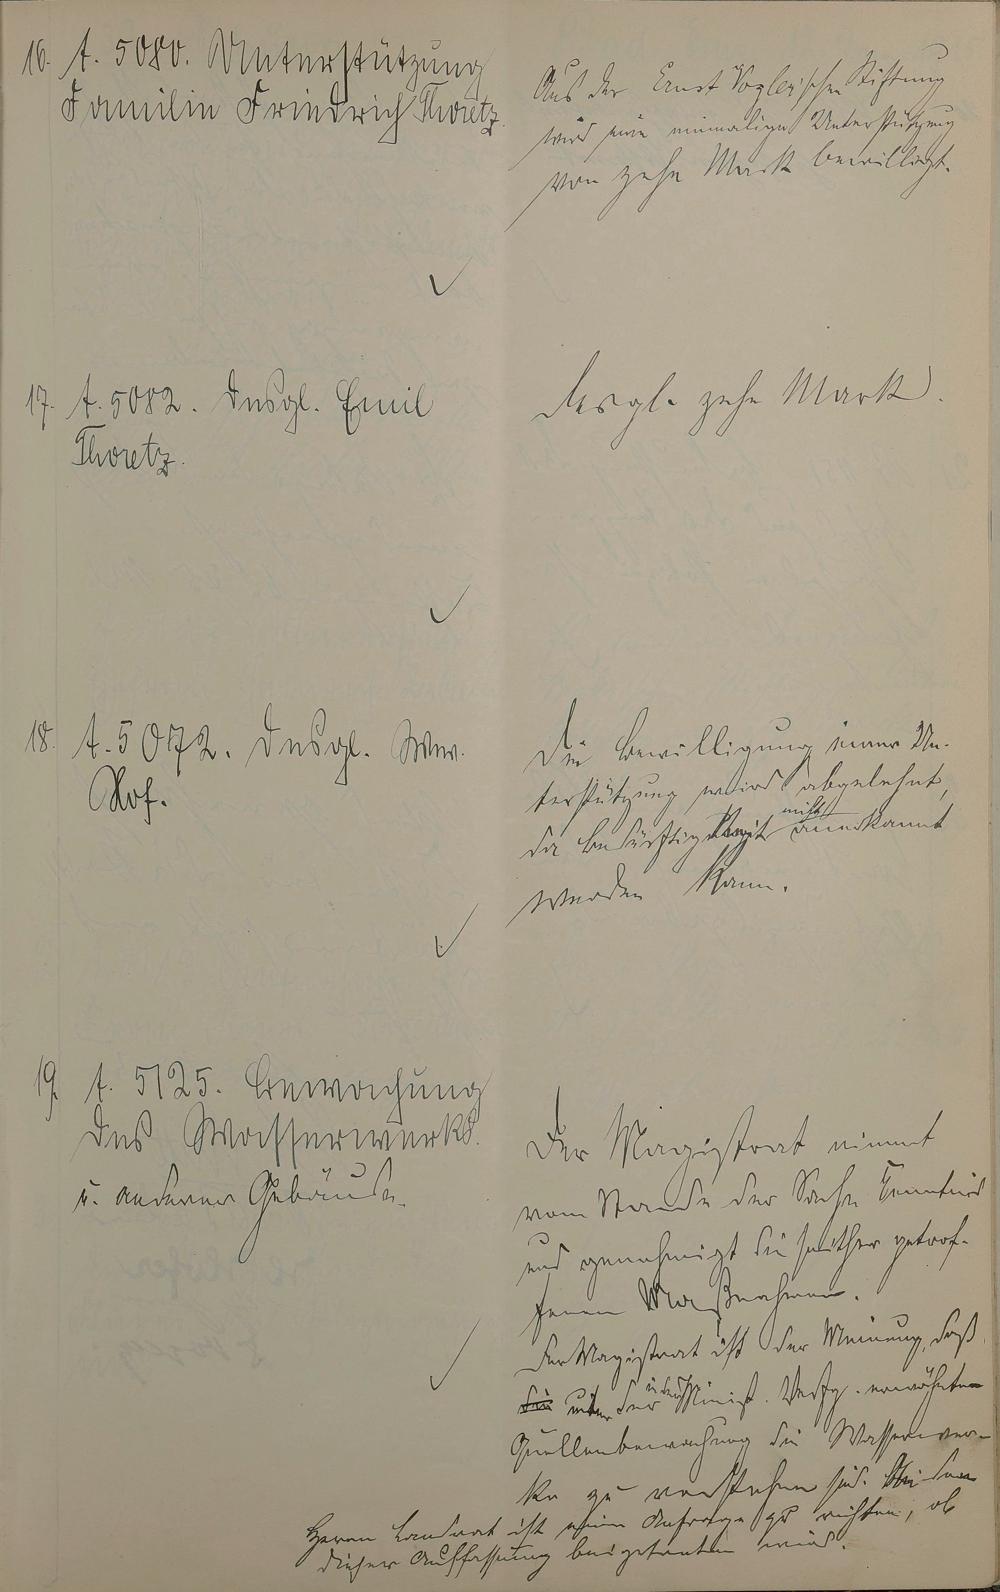 16. A. 5080. Unterstützung
Familie Friedrich Thoretz.
Aus der Ernst Vogler'schen Stiftung
wird eine einmalige Unterstützung
von zehn Mark bewilligt.
17. A. 5082. Desgl. Emil
Thoretz.
desgl. zehn Mark.
18. A. 5072. Desgl. Wwe.
Hof.
Die Bewilligung einer Un-
terstützung wird abgelehnt,
da Bedürftigkeit nicht anerkannt
werden kann.
19. A. 5125. Bewachung
des Wasserwerks
u. anderer Gebäude.
Der Magistrat nimmt
vom Stande der Sache Kenntnis
und genehmigt die seither getrof-
fenen Maßnahmen.
Der Magistrat ist der Meinung, daß
unter der in der Minist. Verfg. erwähnten
Quellenbewachung die Wasserwer-
ke zu verstehen sind. An den
Herrn Landrat ist eine Anfrage zu richten, ob
dieser Auffassung beigetreten wird.